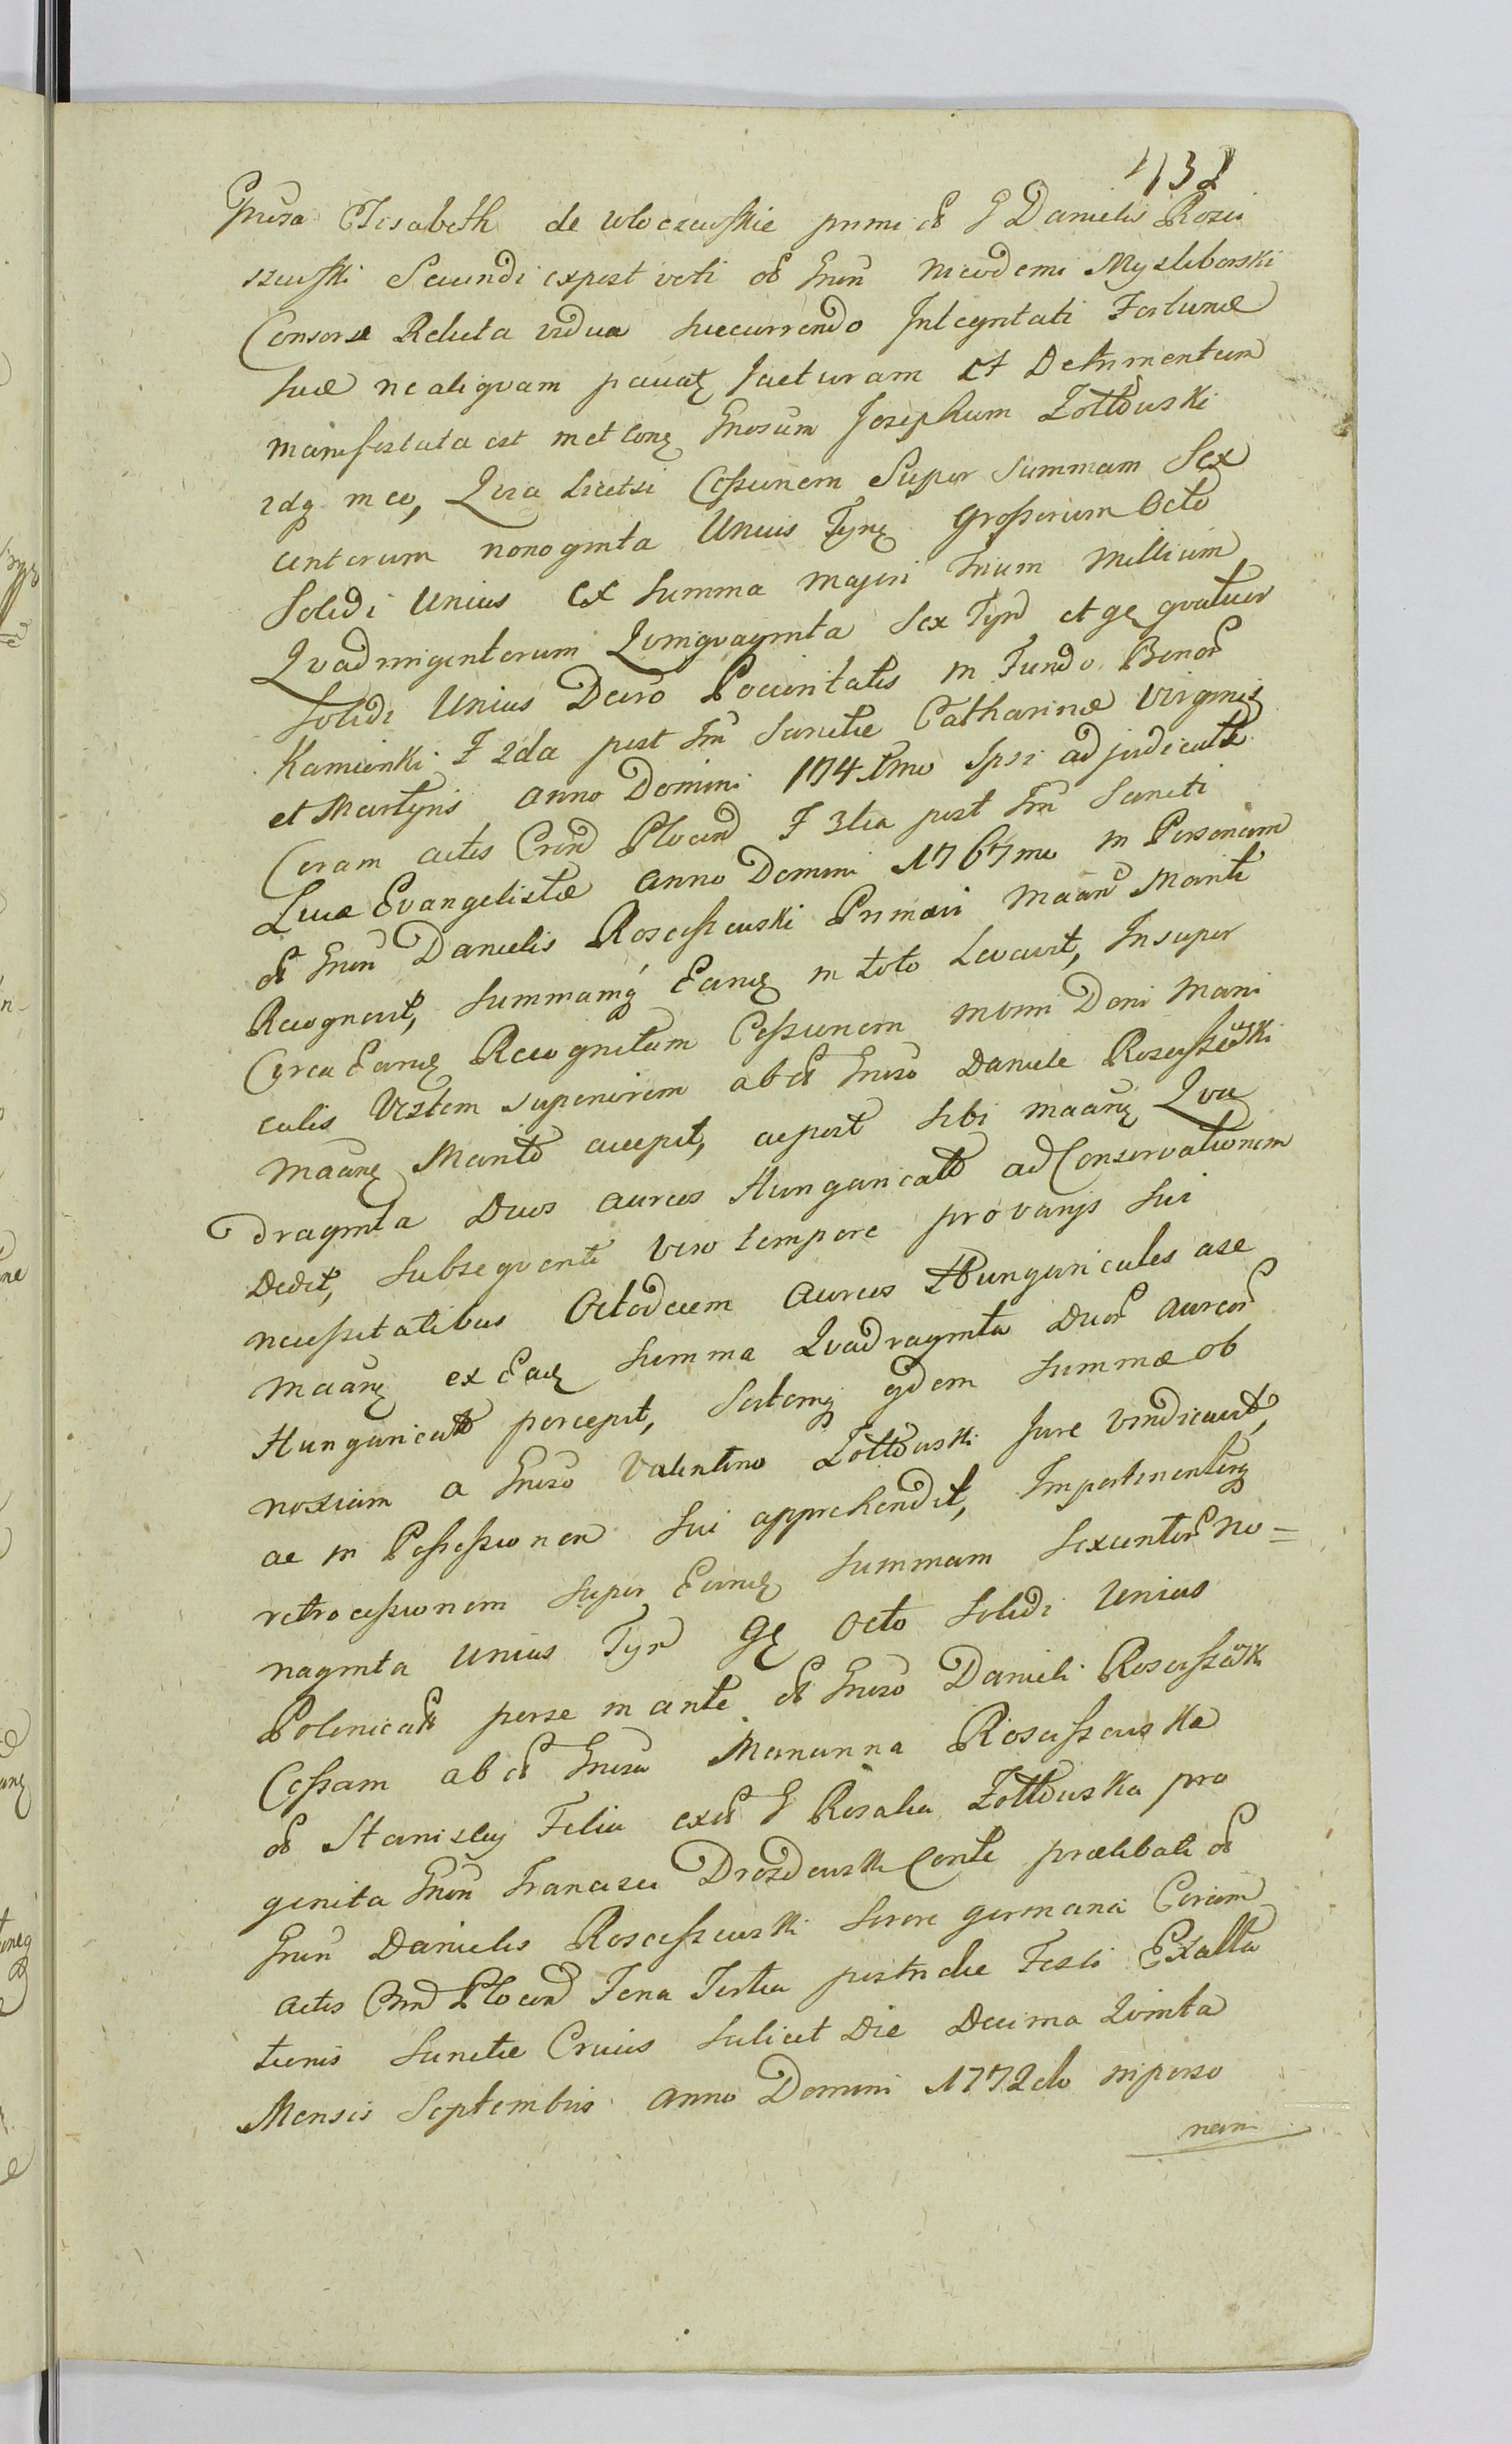 432
Gnrsa Elisabeth de Wloczewskie primi olt G Danielis Rosci
szewski Secundi expost voti olt Gnrsi Nicodemi Mysliborski
Consors Relicta vidua succurrendo Integritati Fortunæ
suæ ne aliquam paciatur Jacturam et Detrimentum
manifestata est Gnrosum Josephum Żołtowski
idq in eo, Quia licetsi Cessionem Super Summam Sex
centorum nonoginta Unius Tynf Grossorum Octo
Solidi Unius ex Summa majori trium millium
Qvadringentorum Qvinqvaginta Sex Tynf et gr qvatuor
Solidi Unius Decro Pocuntatis in Fundo Bonor
Kamionki F 2da post Fm Sanctæ Catharinæ Virginis
et Martyris Anno Domini Ipsi adjudicatæ
Coram actis Plocen F 3tia post Fm Sancti
Lucæ Evangelistæ Anno Domini 1767mo in Personam
olt Gnrsi Danielis Rosciszewski Primarii Mariti
Recognovit, Summamq Eand in toto Levavit, Insuper
Circa Eand Recognitam Cessionem Doni Mani
calis Vestem superiorem ab olt Gnrso Daniele Rosciszewski
Marito accepit, acpost sibi Qva
draginta Duos aureos Hungaricat ad Conservationem
Dedit, Subseqventi vero tempore pro varijs sui
necessitatibus Octodecim Aureos Hungaricales a se
ex Ead Summa Qvadraginta Duor Aureor
Hungaricat percepit, Sortemq Summæ ob
noxiam a Gnrso Valentino Żołtowski Jure vindicavit,
ac in Possessionem sui apprehendit, Impertinenterq
retrocessionem super Eand Summam Sexcentor No=
naginta Unius Tynf Gr Octo Solidi Unius
Polonicat per se in ante olt Gnrso Danieli Rosciszewski
Cessam ab olt Gnrsa Marianna Rosciszewska
olt Stanislai Filia ex olt G Rosalia Żołtowska pro
genita Gnrsi Francisci Drozdewski Conte prælibati olt
Gnrsi Danielis Rosciszewski Sorore germana Coram
actis Plocen Feria Tertia postridie Festi Exalta
tionis Sanctæ Crucis scilicet Die Decima Qvinta
Mensis Septembris Anno Domini 1772do in perso
nam